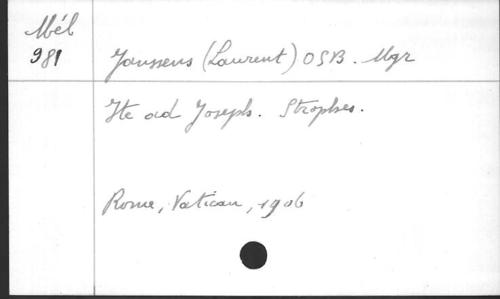 Mél
981
Janssens (Laurent) OSB. Mgr
Ite ad Joseph. Strophes.
Rome, Vatican, 1906